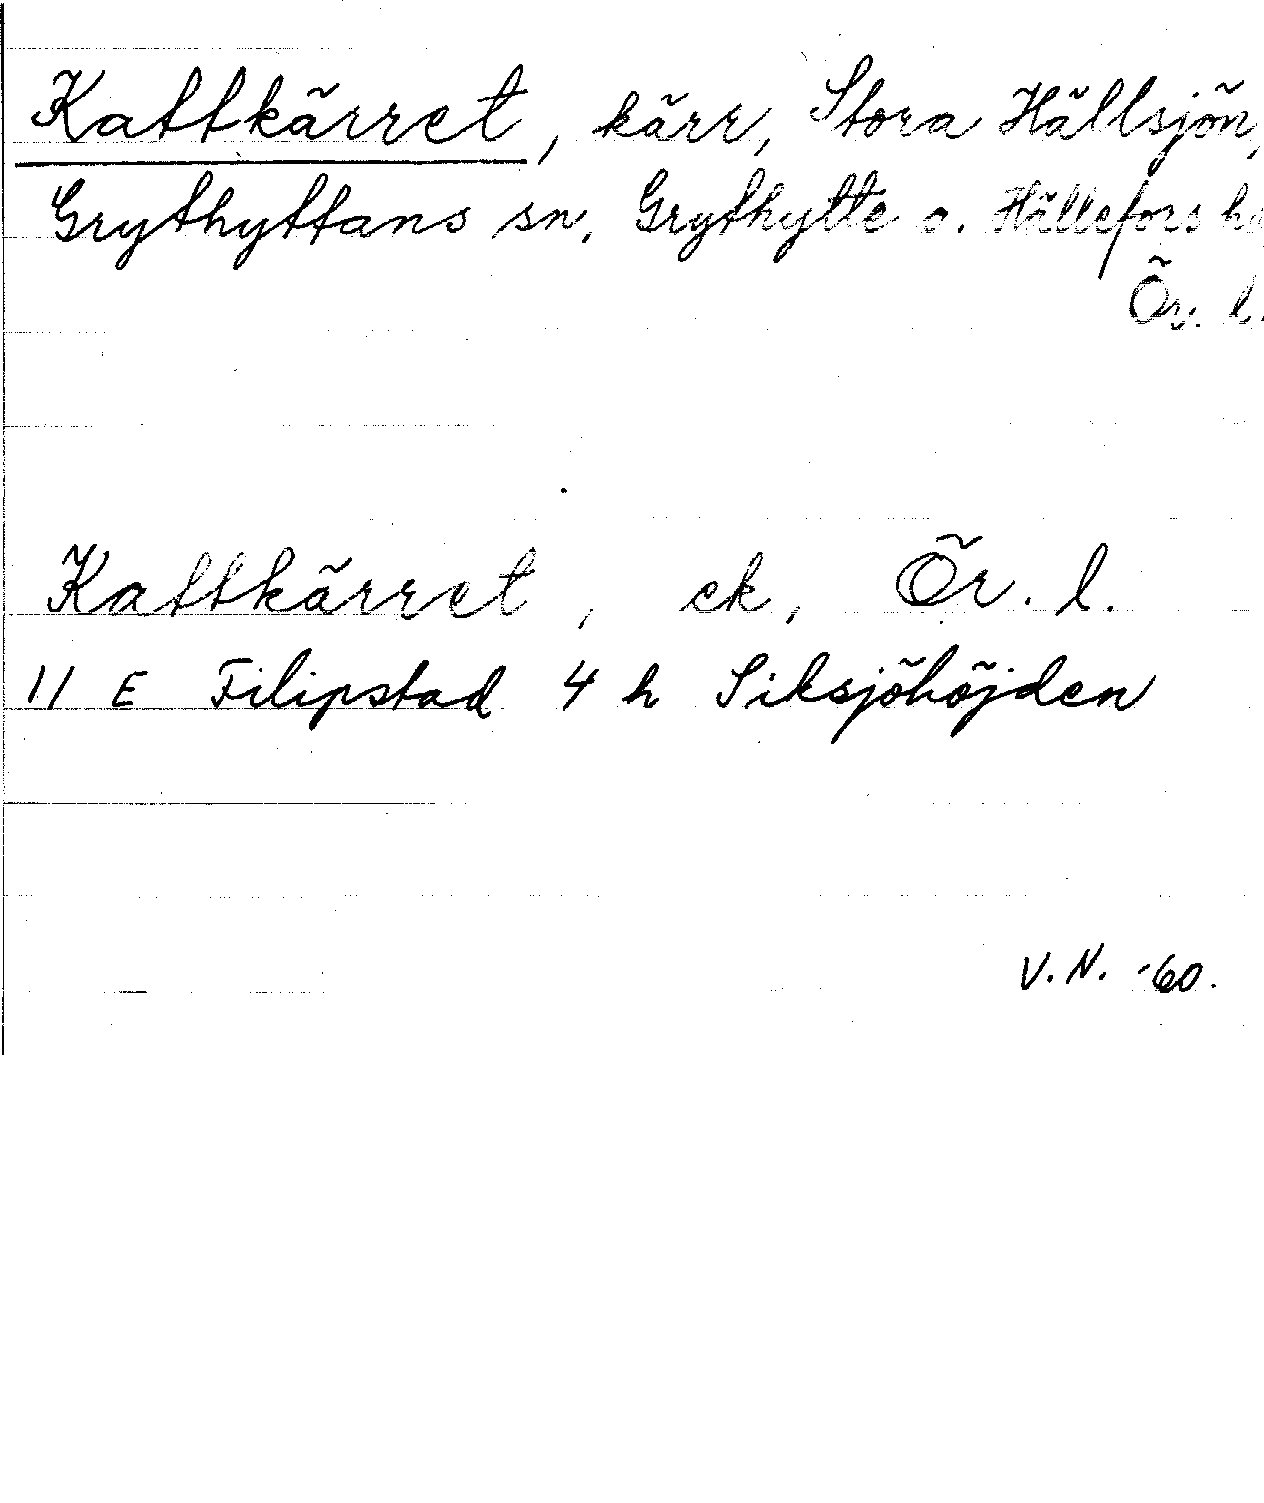 Kattkärret, kärr, Stora Hällsjön,
Grythyttans sn, Grythytte o. Hällefors
Ör. l.
Kattkärret, ek, Ör. l.
11 E Filipstad 4 h Siksjöhöjden
V. N. -60.